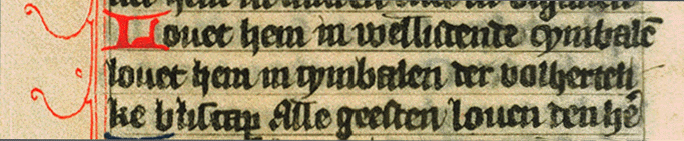 Louet hem in welludende cymbalē
louet hem in cymbalen der volherteli
ke bliscap Alle geesten louen den hē